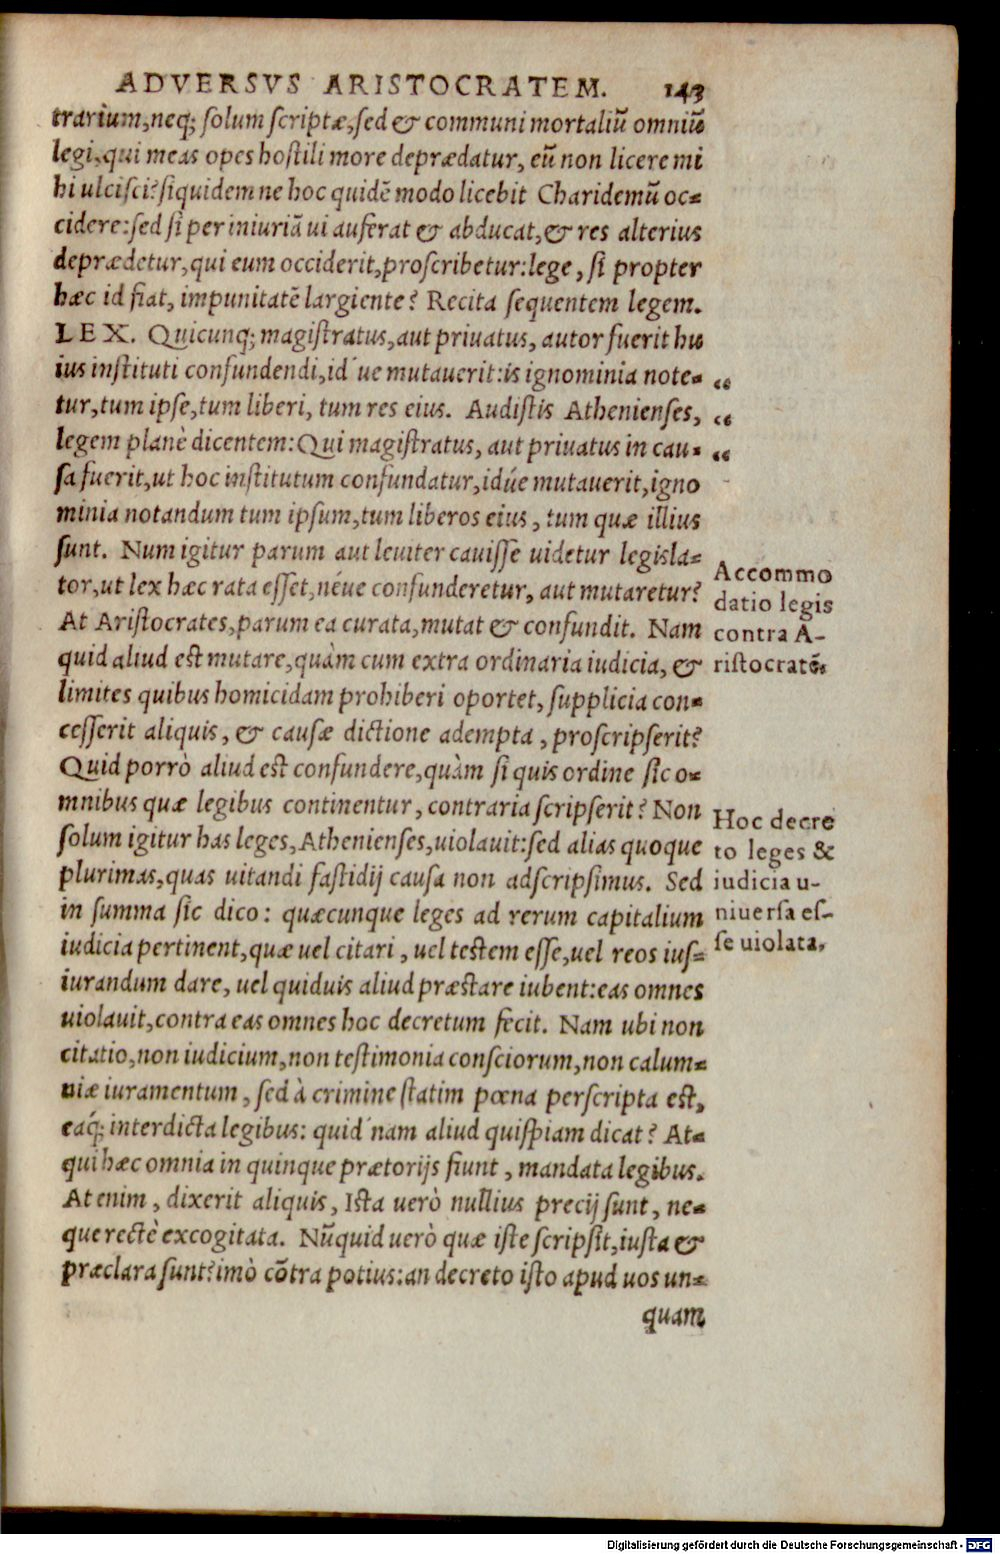 ADVERSVS ARISTOCRATEM. 143
trariùm,neq; ſolum ſcriptæ,ſed & communi mortaliũ omniũ
legi,qui meas opes hoſtili more deprædatur, eũ non licere mi
hi ulciſci?ſiquidem ne hoc quidẽ modo licebit Charidemũ oc=
cidere:ſed ſi per iniuriã ui auferat & abducat,& res alterius
deprædetur,qui eum occiderit,proſcribetur:lege, ſi propter
hæc id fiat, impunitatẽ largiente? Recita ſequentem legem.
LEX. Quicunq; magiſtratus,aut priuatus, autor fuerit hu
ius inſtituti confundendi,id´ue mutauerit:is ignominia note= „
tur,tum ipſe,tum liberi, tum res eius. Audiſtis Athenienſes, „
legem planè dicentem:Qui magiſtratus, aut priuatus in cau= „
ſa fuerit,ut hoc inſtitutum confundatur,idúe mutauerit,igno
minia notandum tum ipſum,tum liberos eius, tum quæ illius
ſunt. Num igitur parum aut leuiter cauiſſe uidetur legisla=
tor,ut lex hæc rata eſſet,néue confunderetur, aut mutaretur?
At Ariſtocrates,parum ea curata,mutat & confundit. Nam
quid aliud est mutare,quàm cum extra ordinaria iudicia, &
limites quibus homicidam prohiberi oportet, ſupplicia con=
ceſſerit aliquis, & cauſæ dictione adempta, proſcripſerit?
Quid porrò aliud est confundere,quàm ſi quis ordine ſic o=
mnibus quæ legibus continentur, contraria ſcripſerit? Non
ſolum igitur has leges,Athenienſes,uiolauit:ſed alias quoque
plurimas,quas uitandi faſtidij cauſa non adſcripſimus. Sed
in ſumma ſic dico: quæcunque leges ad rerum capitalium
iudicia pertinent,quæ uel citari, uel teſtem eſſe,uel reos iuſ=
iurandum dare, uel quiduis aliud præſtare iubent:eas omnes
uiolauit,contra eas omnes hoc decretum fecit. Nam ubi non
citatio,non iudicium,non teſtimonia conſciorum,non calum=
niæ iuramentum, ſed à crimine ſtatim pœna perſcripta eſt,
eáq; interdicta legibus: quid´nam aliud quiſpiam dicat? At=
qui hæc omnia in quinque prætorijs fiunt, mandata legibus.
At enim, dixerit aliquis, Iſta uerò nullius precij ſunt, ne=
que rectè excogitata. Nũquid uerò quæ iſte ſcripſit,iuſta &
præclara ſunt?imò cõtra potius:an decreto iſto apud uos un=
quam
Accommo
datio legis
contra A-
riſtocratẽ.
Hoc decre
to leges &
iudicia u-
niuerſa eſ-
ſe uiolata,
Digitalisierung gefördert durch die Deutsche Forschungsgemeinschaft - DFG